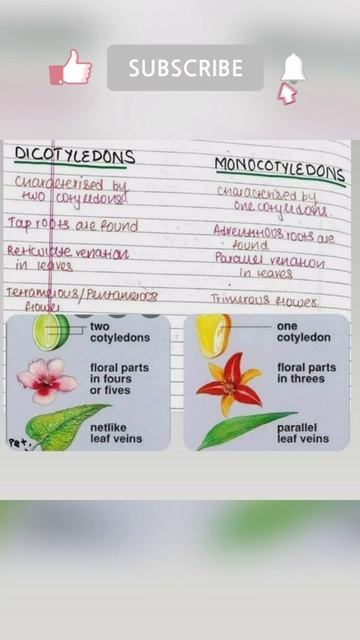 SUBSCRIBE
DICOTYLEDONS
Characterised by
two cotyledons
Tap roots are found
Reticulate venation
in leaves
Tetramerous/Pentamerous
flower
MONOCOTYLEDONS
Characterised by
one cotyledons
Adventitious roots are
found.
Parallel venation
in leaves
Trimerous flower
two
cotyledons
floral parts
in fours
or fives
netlike
leaf veins
one
cotyledon
floral parts
in threes
parallel
leaf veins